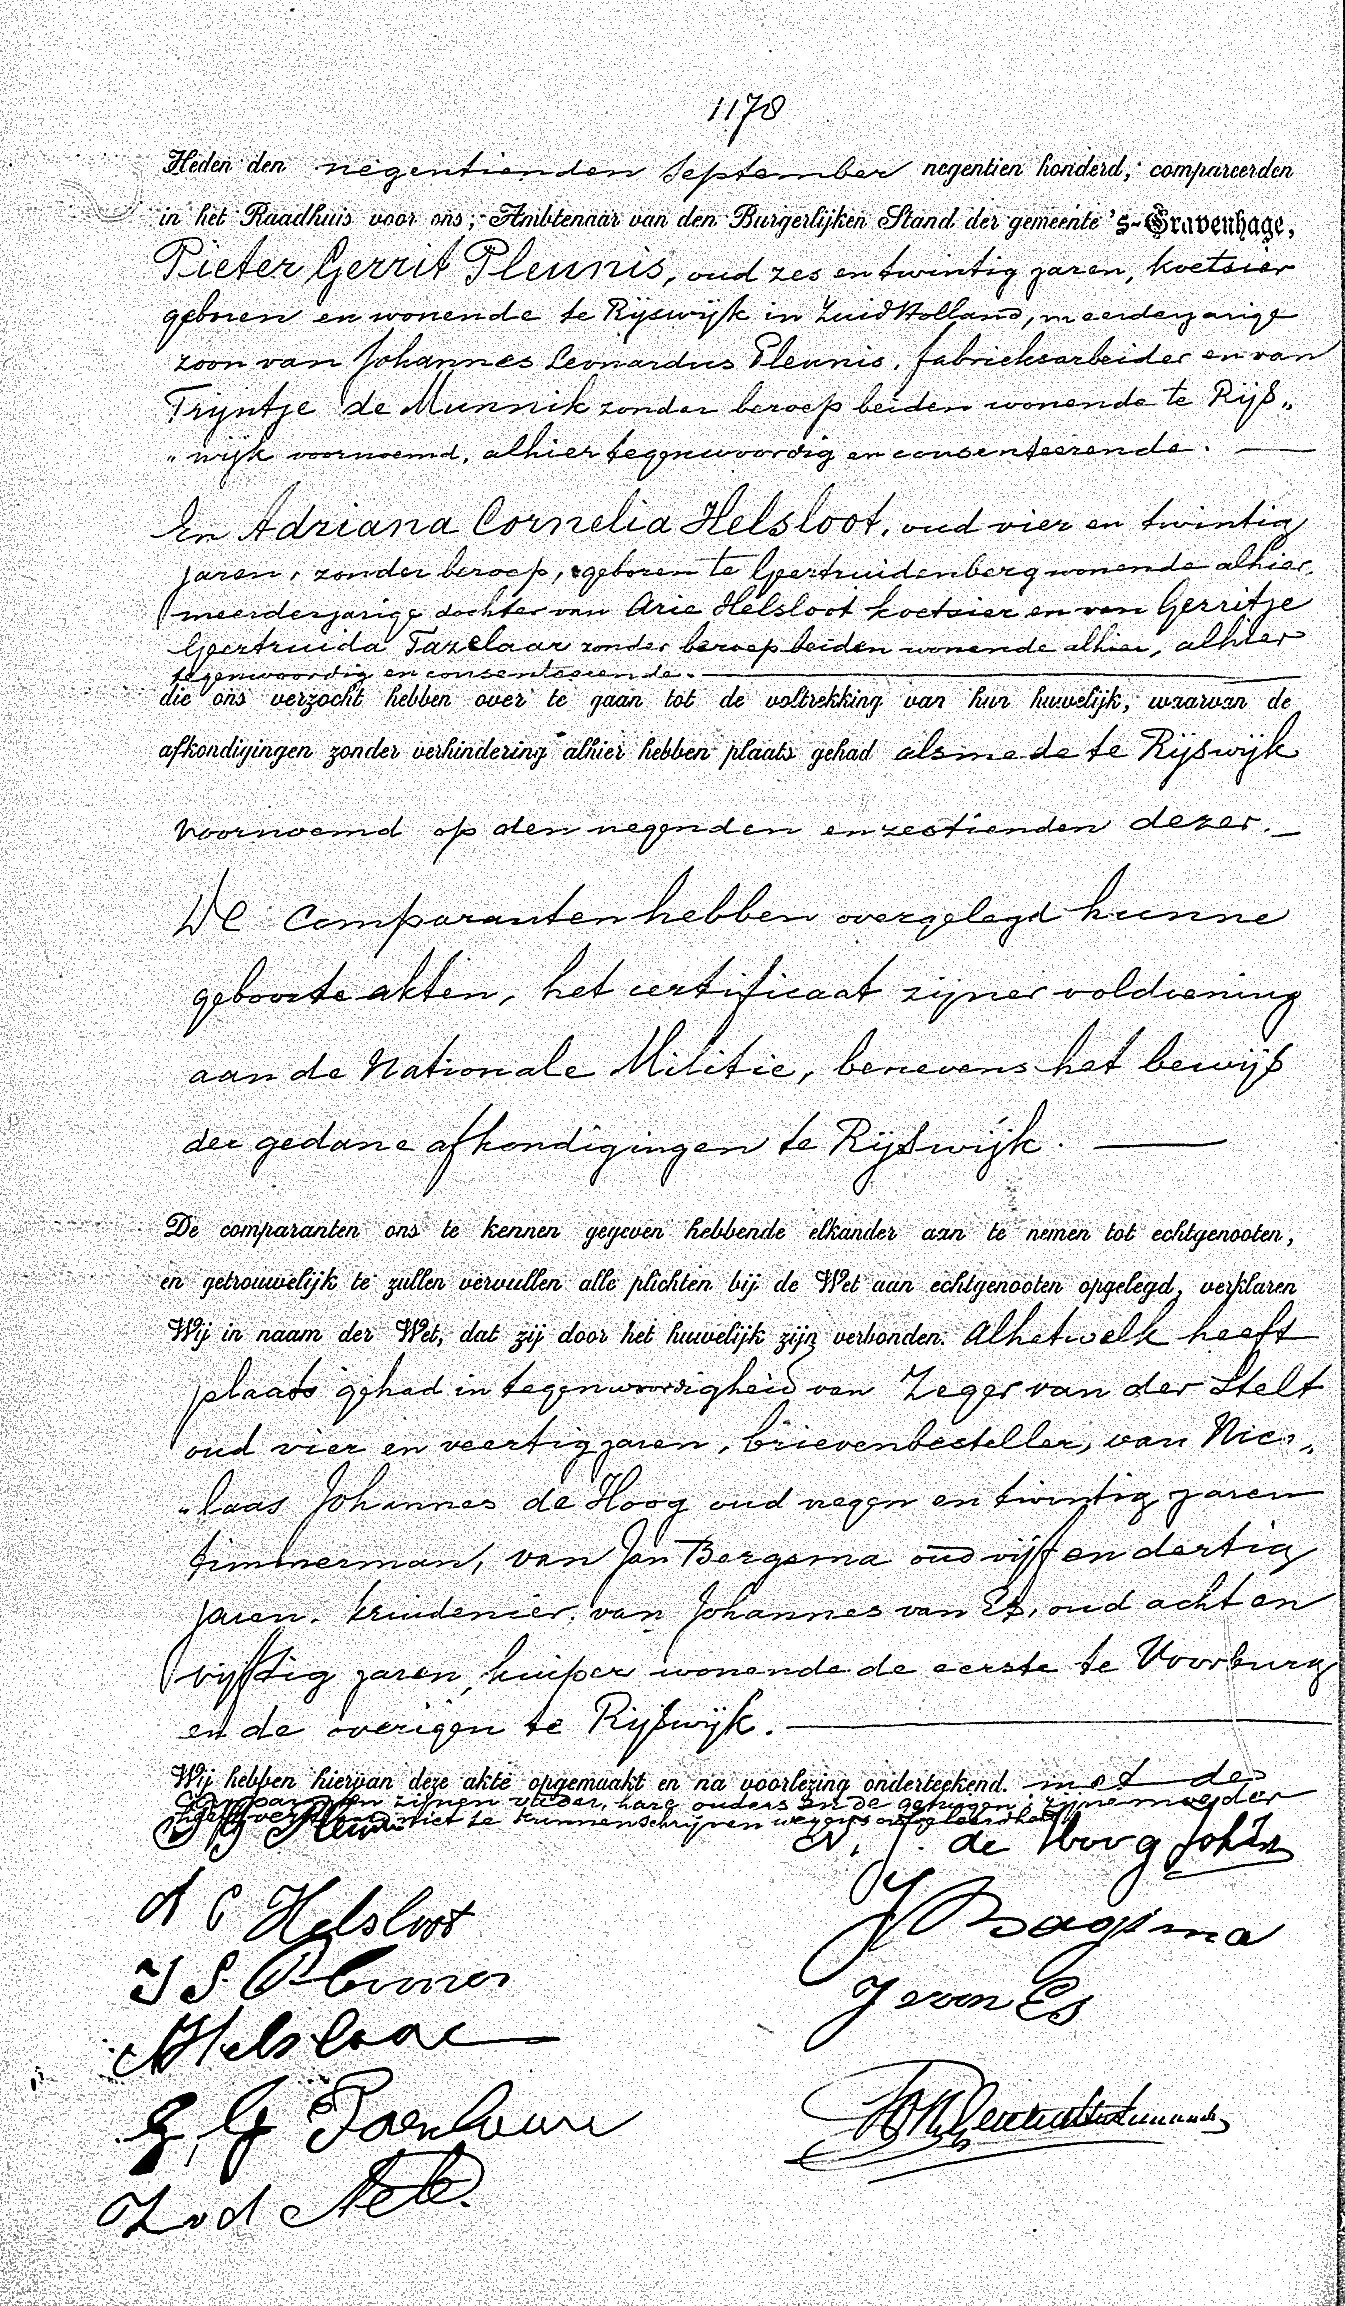 1178
Heden den negentienden September negentien honderd, compareerden
in het Raadhuis voor ons, Ambtenaar van den Burgerlijken Stand der gemeente 's-Gravenhage,
Pieter Gerrit Pleunis, oud zes en twintig jaren, koetsier
geboren en wonende te Rijswijk in Zuid Holland, meerderjarige
zoon van Johannes Leonardus Pleunis, fabrieksarbeider en van
Trijntje de Munnik zonder beroep beiden wonende te Rijs„
„wijk voornoemd, alhier tegenwoordig en consenteerende. —
En Adriana Cornelia Helsloot, oud vier en twintig
jaren, zonder beroep, geboren te Geertruidenberg wonende alhier,
meerderjarige dochter van Arie Helsloot koetsier en van Gerritje
Geertruida Tazelaar zonder beroep beiden wonende alhier, alhier
tegenwoordig en consenteerende. —
die ons verzocht hebben over te gaan tot de voltrekking van hun huwelijk, waarvan de
afkondigingen zonder verhindering alhier hebben plaats gehad alsmede te Rijswijk
voornoemd op den negenden en zestienden dezer. —
De Comparanten hebben overgelegd hunne
geboorte akten, het certificaat zijner voldoening
aan de Nationale Militie, benevens het bewijs
der gedane afkondigingen te Rijswijk. —
De comparanten ons te kennen gegeven hebbende elkander aan te nemen tot echtgenooten,
en getrouwelijk te zullen vervullen alle plichten bij de Wet aan echtgenooten opgelegd, verklaren
Wij in naam der Wet, dat zij door het huwelijk zijn verbonden. Alhetwelk heeft
plaats gehad in tegenwoordigheid van Zeger van der Stelt
oud vier en veertig jaren, brievenbesteller, van Nico„
„laas Johannes de Hoog oud negen en twintig jaren
timmerman, van Jan Bergsma oud vijf en dertig
jaren, kruidenier, van Johannes van Es, oud acht en
vijftig jaren, kuiper wonende de eerste te Voorburg
en de overigen te Rijswijk. —
Wij hebben hiervan deze akte opgemaakt en na voorlezing onderteekend. met de
Comparanten zijnen vader, hare ouders en de getuigen; zijne moeder
heeft verklaard niet te kunnen schrijven wegens ongeleerdheid
P G Pleunis
N. J. de Hoog Johzn
A C Helsloot
J Bergsma
J L Pleunis
J van Es
A Helsloot
G. G Tazelaar
Z v d Stelt